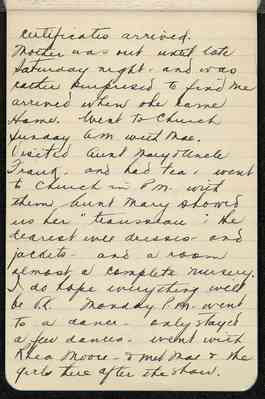 certificates arrived.
Mother was out until late
Saturday night - and was
rather surprised to find me
arrived when she came
home. Went to Church
Sunday A.M. with Mae.
Visited Aunt Mary & Uncle
Frank - and had tea, went
to Church in P.M. with
them. Aunt Mary showed
us her "trousseau", the
dearest wee dresses - and
jackets - and a room
almost a complete nursery.
I do hope everything will
be O.K. Monday P.M. went
to a dance - only stayed
a few dances. Went with
Rhea Moore - & met Mae & the
girls there after the show.